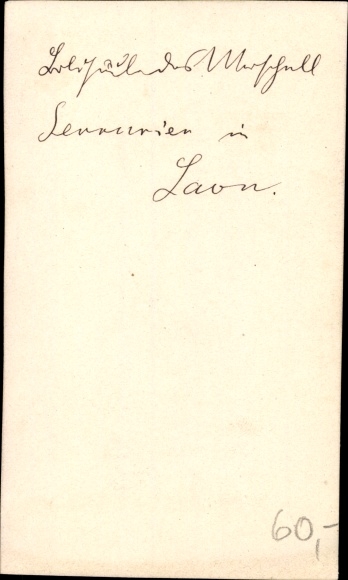 Bildsäule des Marschall
Serrurier in
Laon.
60,-